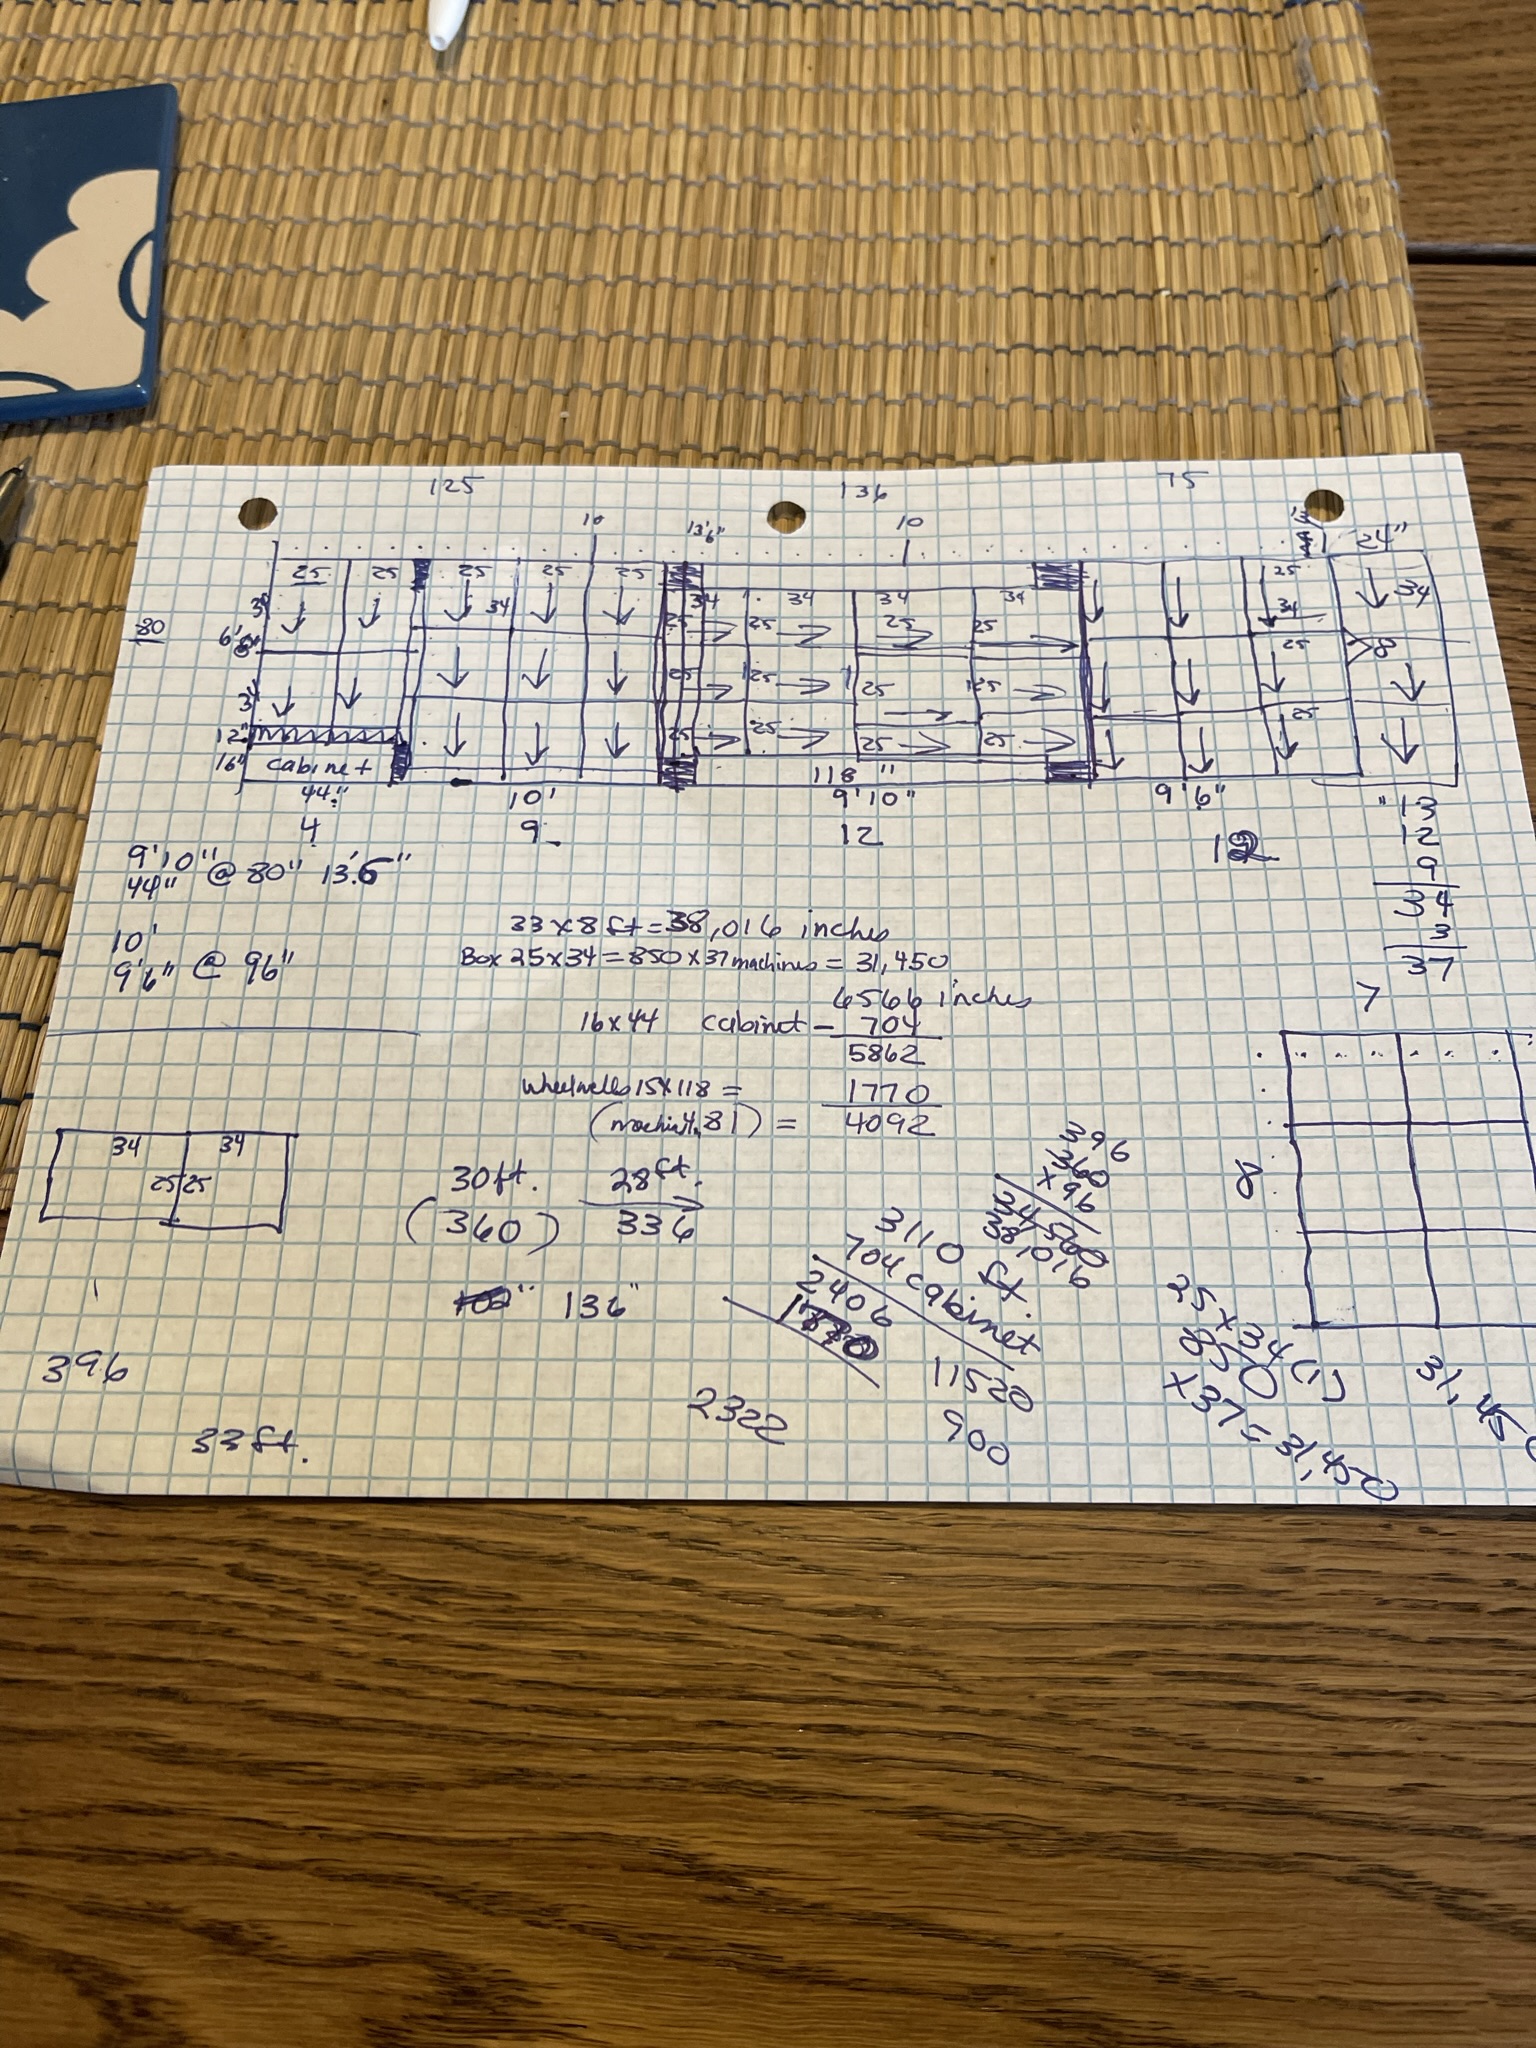 125 136 75
10 13'6" 10 24"
25 25 25 25 25 34 34 34 34 25 34
34 25 25 25 25 34 8
80
6'
25 25 25 25 25
12"
16" cabinet 25 25 25 25 118"
44" 10' 9'10" 9'6" "13
4 9 12 12 12
9
34
3
37
9'10" @ 80" 13'6"
44"
10'
9'6" @ 96"
33 x 8 ft = 38,016 inches
Box 25 x 34 = 850 x 37 machines = 31,450
6566 inches
16 x 44 cabinet - 704
5862
wheelwells 15 x 118 = 1770
= 4092
7
8
34 34
25 25
30 ft. 28 ft.
(360) 336
136"
396
360
x 96
34,560
38,016
3110 ft.
704 cabinet
2406
11520
900
2322
25 x 34 (1)
850
x 37 = 31,450
396
33 ft.